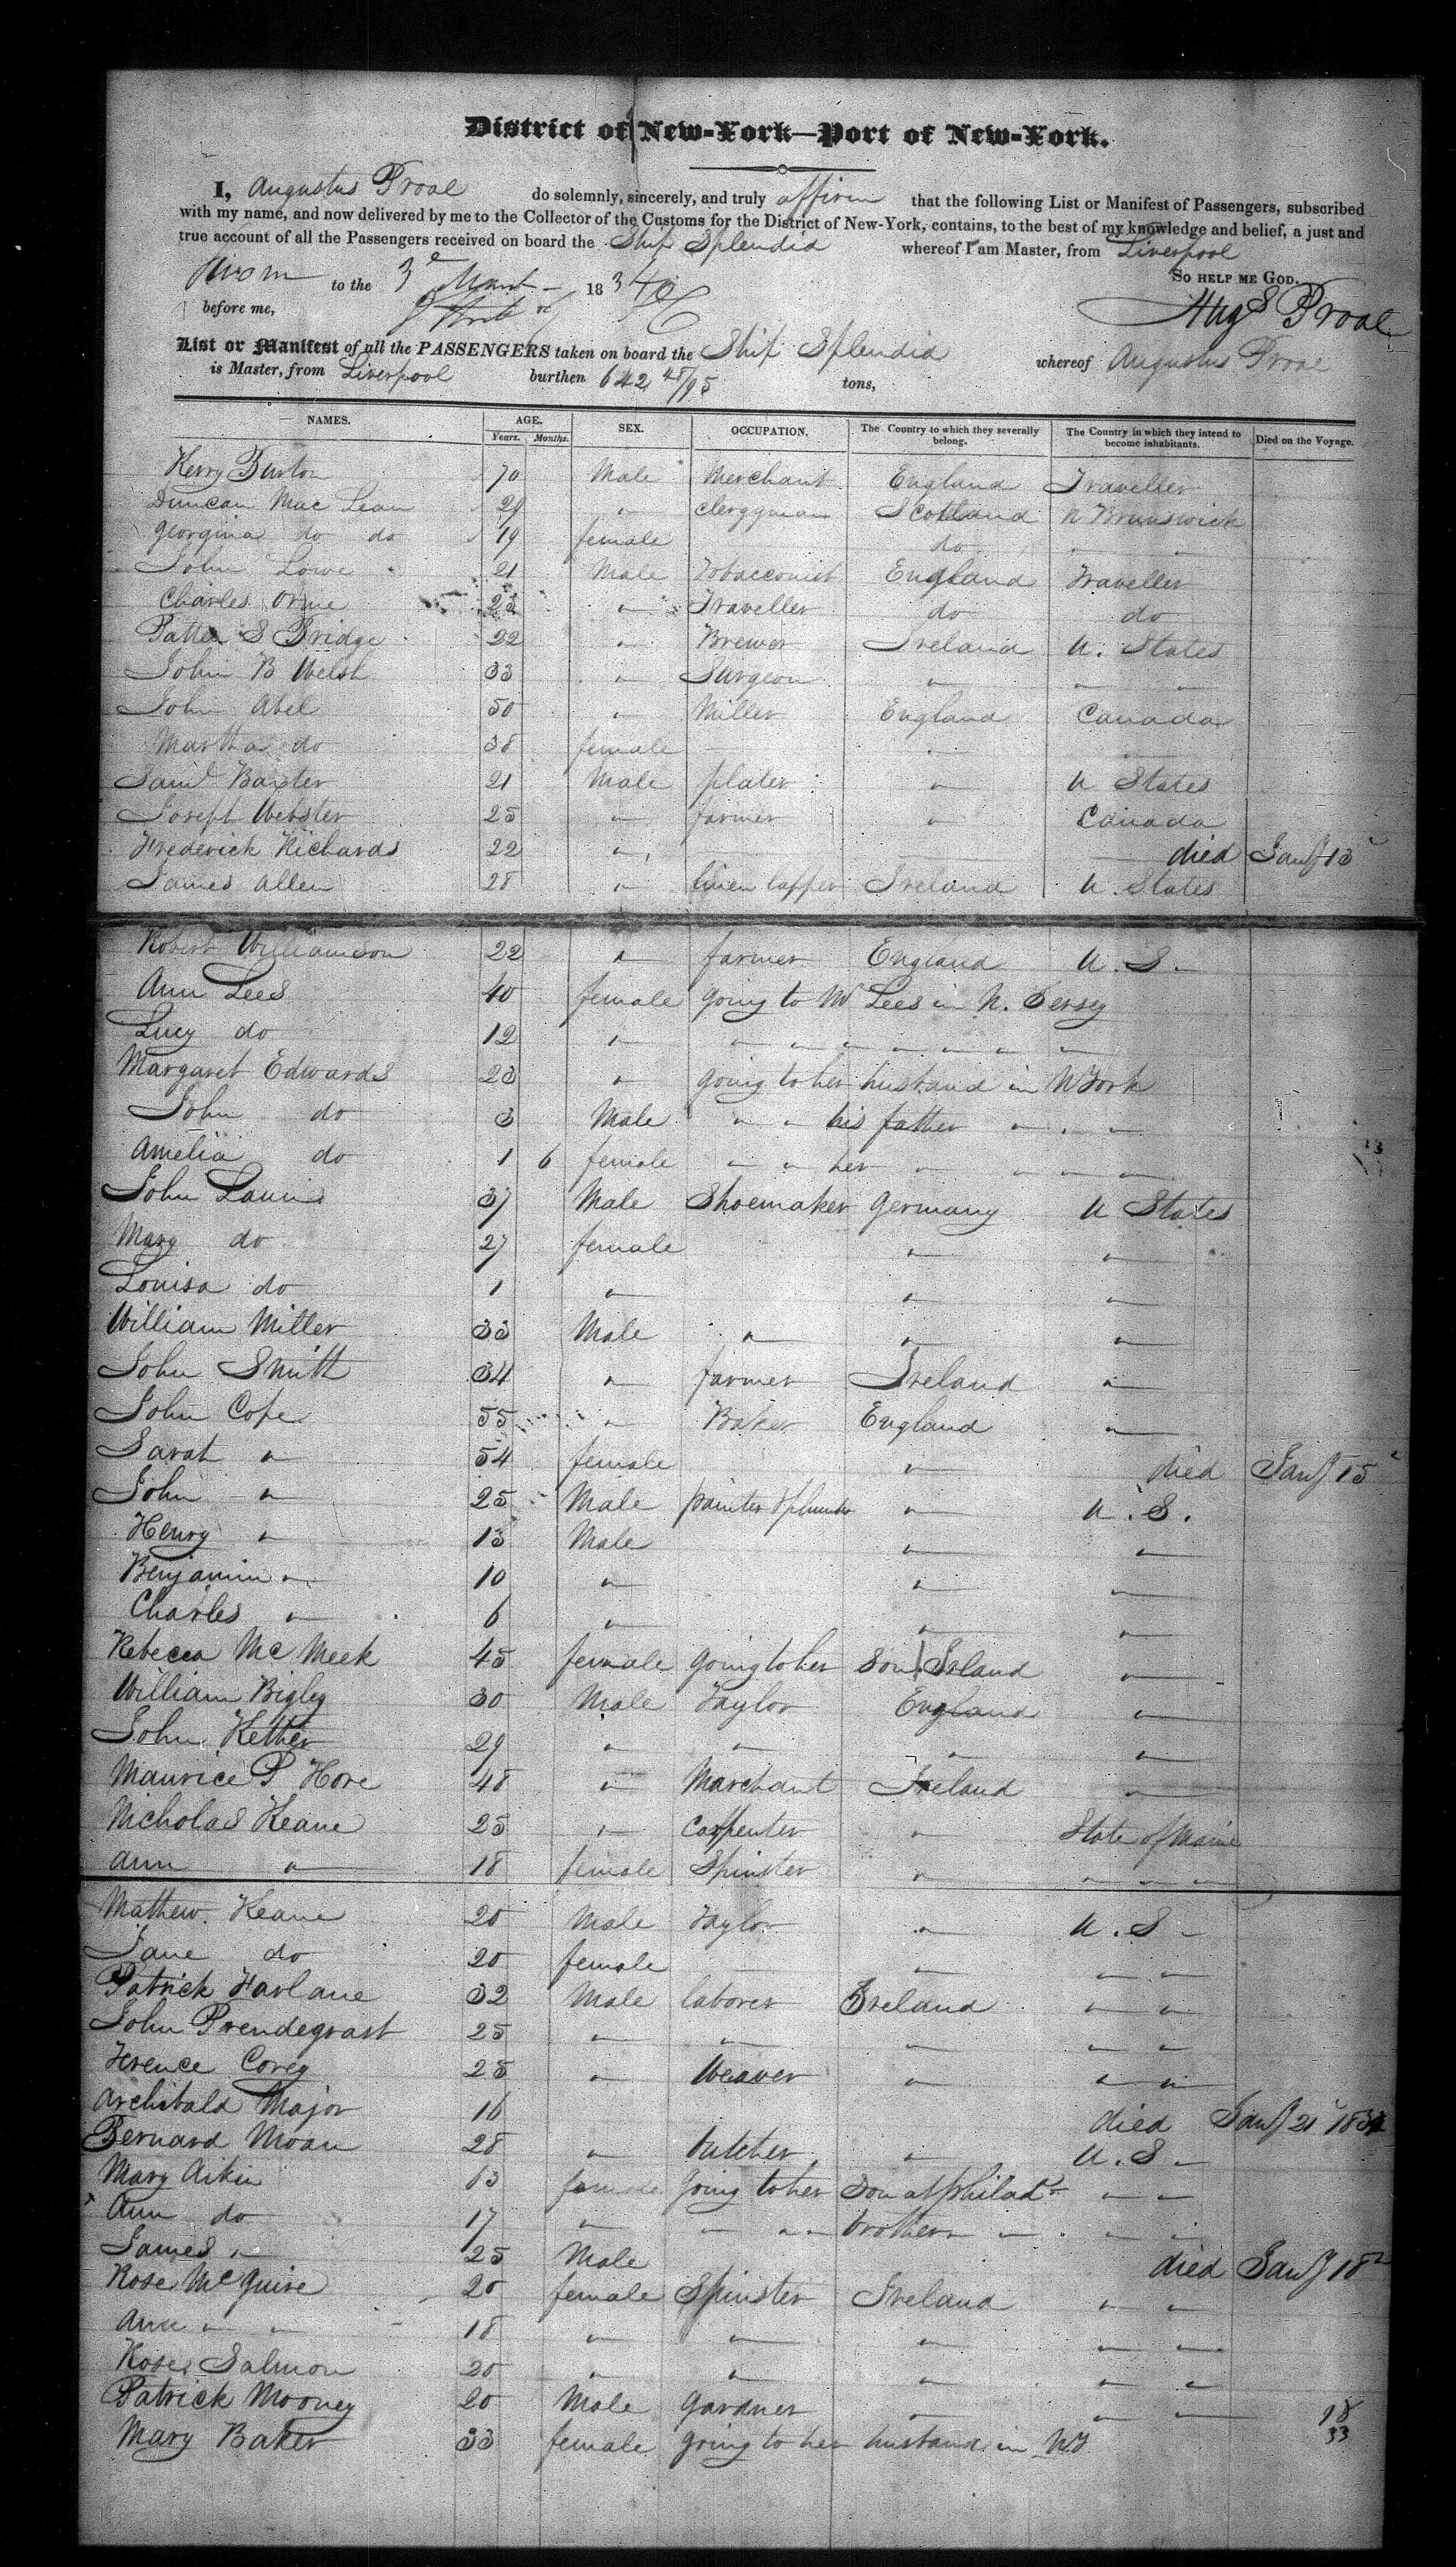 District of New-York—Port of New-York.
I, Augustus Proal do solemnly, sincerely, and truly affirm that the following List or Manifest of Passengers, subscribed
with my name, and now delivered by me to the Collector of the Customs for the District of New-York, contains, to the best of my knowledge and belief, a just and
true account of all the Passengers received on board the Ship Splendid whereof I am Master, from Liverpool
to the 3 18 So help me God.
before me, Augs Proal
List or Manifest of all the PASSENGERS taken on board the Ship Splendid whereof Augustus Proal
is Master, from Liverpool burthen 642 48/95 tons,
NAMES. AGE. SEX. OCCUPATION. The Country to which they severally belong. The Country in which they intend to become inhabitants. Died on the Voyage.
Years. Months.
Burton 70 Male Merchant England Traveller
Duncan Mac Lean 29 " Clergyman Scotland N Brunswick
Georgina do do 19 female do " "
John Lowe 21 Male Tobacconist England Traveller
Charles Orme 25 " Traveller do do
S Bridge 22 " Brewer Ireland U. States
John B Welsh 33 " Surgeon " " "
John Abel 50 " Miller England Canada
Martha do 38 female " "
Saml Baxter 21 Male plater " U States
Joseph Webster 25 " farmer " Canada
Frederick Richards 22 " died Jany 13
James Allen 28 " linen lapper Ireland U. States
Robert Williamson 22 " farmer England U. S.
Ann Lees 40 female going to W Lees in N. Jersey
Lucy do 12 " " " " " " " "
Margaret Edwards 23 " going to her husband in N York
John do 3 Male " " his father " " "
Amelia do 1 6 female " " her " " " "
John 37 Male Shoemaker Germany U States
Mary do 27 female " "
Louisa do 1 " " "
William Miller 33 Male " " "
John Smith 34 " farmer Ireland "
John Cope 55 " Baker England "
Sarah " 54 female " died Jany 15
John " 25 Male painter & plumber " U. S.
Henry " 13 Male " "
Benjamin " 10 " " "
Charles " 6 " " "
Rebecca Mc Meek 45 female going to her son Irland "
William Bigley 30 Male Taylor England "
John Kether 29 " " " "
Maurice P Hore 48 " Marchant Ireland "
Nicholas Keane 25 " Carpenter " State of Maine
Ann " 18 female Spinster " " " "
Mathew Keane 20 Male Taylor " U. S
Jane do 20 female " " "
Patrick Harlane 32 Male laborer Ireland " "
John Prendegrast 25 " " " " "
Terence Corey 25 " Weaver " " "
Archibald Major 16 died Jany 21 183
Bernard Moan 28 " butcher " U. S
Mary Aikin 63 female going to her son at Philada " "
Ann do 17 " " " " brothers " " "
James " 25 Male died Jany 18
Rose McGuire 20 female Spinster Ireland " "
Ann " " 18 " " " " "
Rose Salmon 20 " " " " "
Patrick Mooney 20 Male Gardner " " "
Mary Baker 33 female going to her husband in NY
18
33